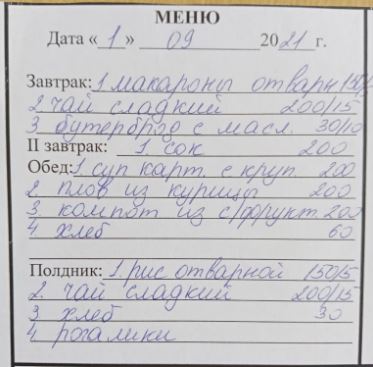 МЕНЮ
Дата « 1 » 09 2021 г.
Завтрак: 1 макароны отварн 150/5
2 чай сладкий 200/15
3 бутерброд с масл. 30/10
II завтрак: 1 сок 200
Обед: 1 суп карт. с круп. 200
2. плов из курицы 200
3. компот из с/фрукт. 200
4 хлеб 60
Полдник: 1. рис отварной 150/5
2. чай сладкий 200/15
3 хлеб 30
4 рогалики